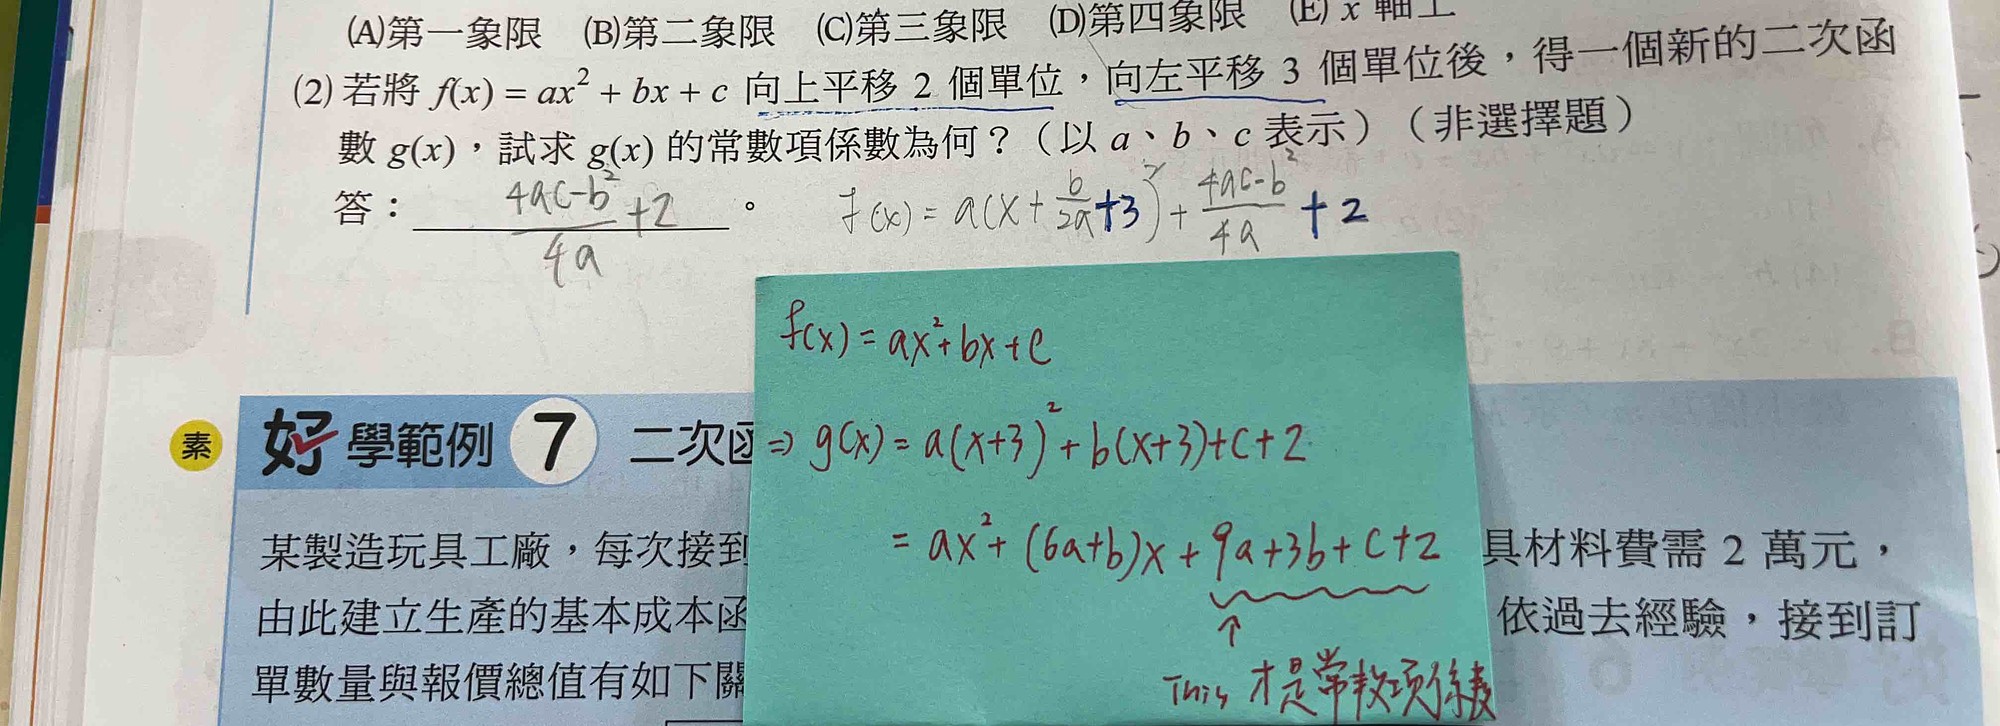 (A)第一象限 (B)第二象限 (C)第三象限 (D)第四象限 (E) x 軸上
(2) 若將 f(x) = ax² + bx + c 向上平移 2 個單位，向左平移 3 個單位後，得一個新的二次函
數 g(x)，試求 g(x) 的常數項係數為何？（以 a、b、c 表示）（非選擇題）
答：(4ac-b²)/4a +2。 f(x) = a(x + b/2a +3)² + (4ac-b²)/4a + 2
f(x) = ax²+bx+c
⇒ g(x) = a(x+3)² + b(x+3)+c+2
= ax²+ (6a+b)x + 9a+3b+c+2
↑
This 才是常數項係數
素 好學範例 7 二次函
某製造玩具工廠，每次接到 具材料費需 2 萬元，
由此建立生產的基本成本函 依過去經驗，接到訂
單數量與報價總值有如下關